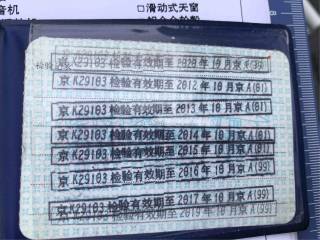 音机
□滑动式天窗
铝合金轮毂
京K29103检验有效期至2020年10月京A(99)
京K29103检验有效期至2012年10月京A(01)
京K29103检验有效期至2013年10月京A(01)
京K29103检验有效期至2014年10月京A(01)
京K29103检验有效期至2015年10月京A(01)
京K29103检验有效期至2016年10月京A(99)
京K29103检验有效期至2017年10月京A(99)